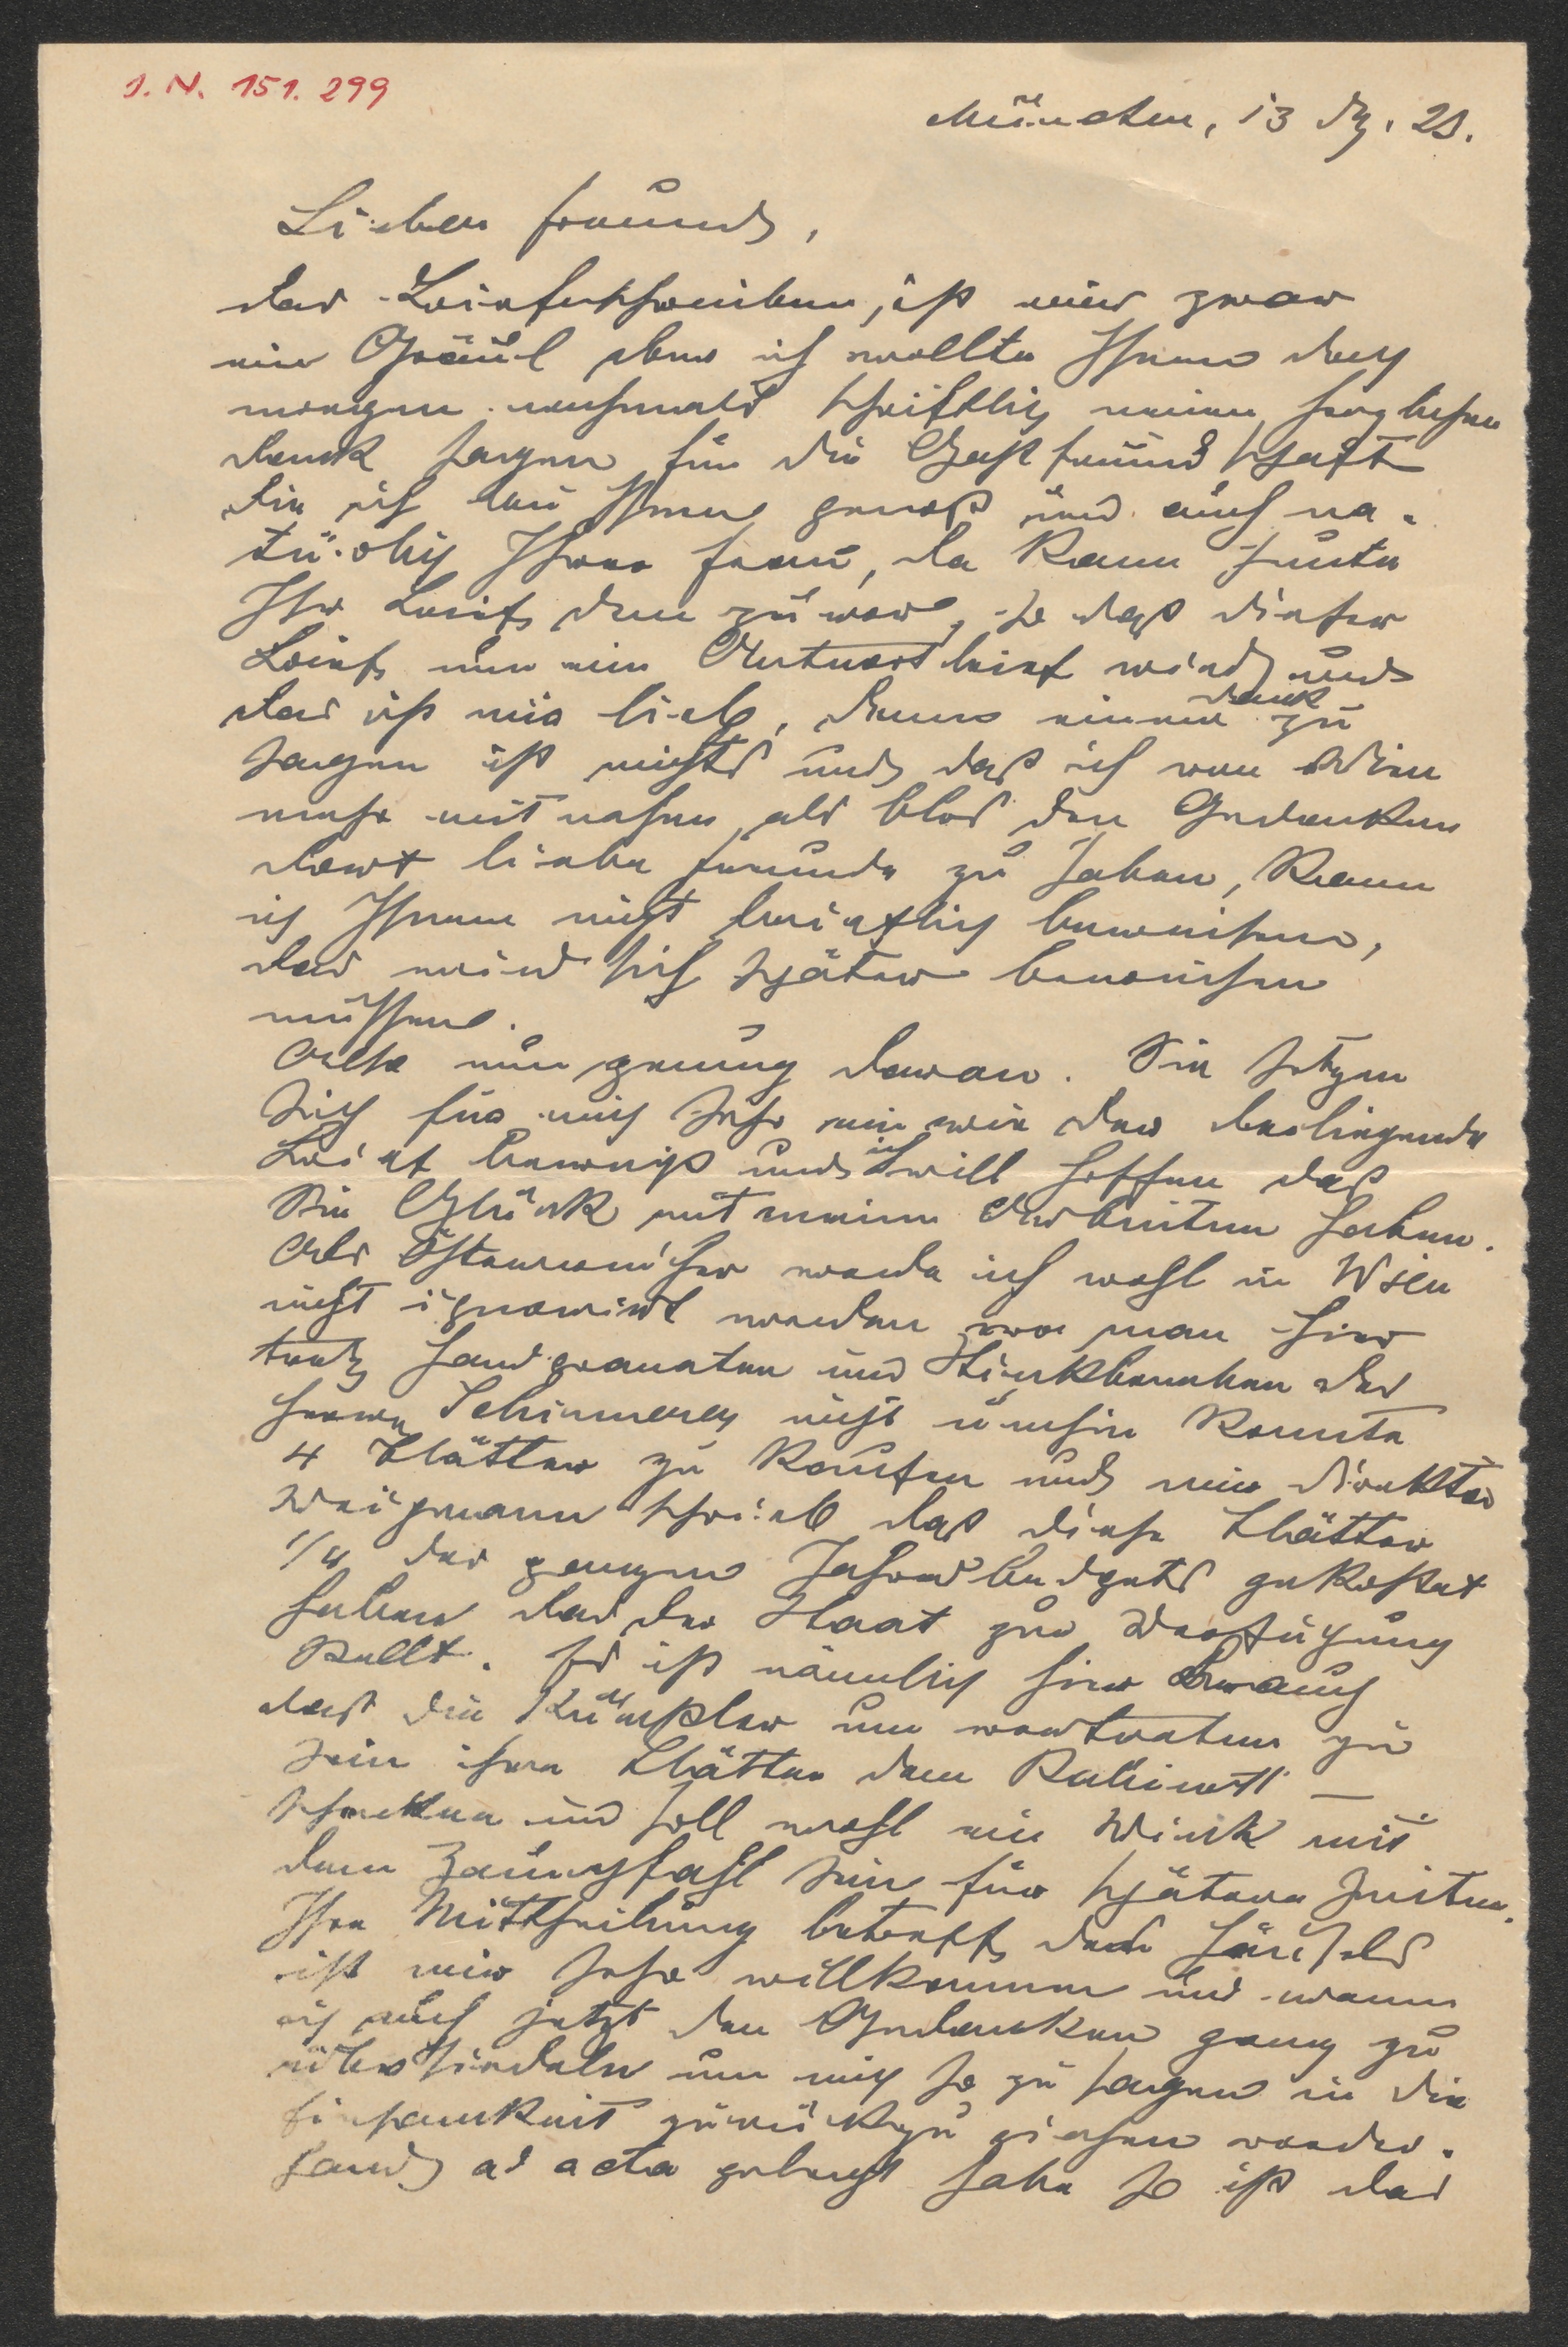 I. N. 151.299
München, 13 Dz. 2S.
Lieber Freund,
das Briefschreiben ist mir zwar
ein Gräul aber ich wollte Ihnen doch
morgen nochmals schriftlich meinen herzlichen
Dank sagen für die Gastfreundschaft
die ich bei Ihnen genoß und auch na-
türlich Ihrer Frau, da kam heute
Ihr Brief dem zuvor, so daß dieser
Brief nun ein Antwortbrief wird und
das ist mir lieb, denn einen Dank zu
sagen ist nichts und daß ich von Wien
mehr mit nahm als blos den Gedanken
dort liebe Freunde zu haben, kann
ich Ihnen nicht brieflich beweisen,
das wird sich später beweisen
müssen.
Also nun genug davon. Sie setzen
sich für mich sehr ein wie der beiliegende
Brief beweist und ich will hoffen daß
Sie Glück mit meinen Arbeiten haben.
Als Östereicher werde ich wohl in Wien
nicht ignorirt werden wo man hier
trotz Handgranaten und Stinkbomben der
Herren Schinnerer nicht umhin konnte
4 Blätter zu kaufen und mir Direktor
Weigmann schrieb daß diese Blätter
1/4 des ganzen Jahresbudgets gekostet
haben das der Staat zur Verfügung
stellt. Es ist nämlich hier Brauch
daß die Künstler um vertreten zu
sein ihre Blätter dem Kabinett
schenken und soll wohl ein Wink mit
dem Zaunpfahl sein für spätere Zeiten.
Ihre Mittheilung betreffs des Häusels
ist mir sehr willkommen und wenn
ich auch jetzt den Gedanken ganz zu
übersiedeln um mich so zu sagen in die
Einsamkeit zurückzuziehen vorder-
hand ad acta gelegt habe so ist das